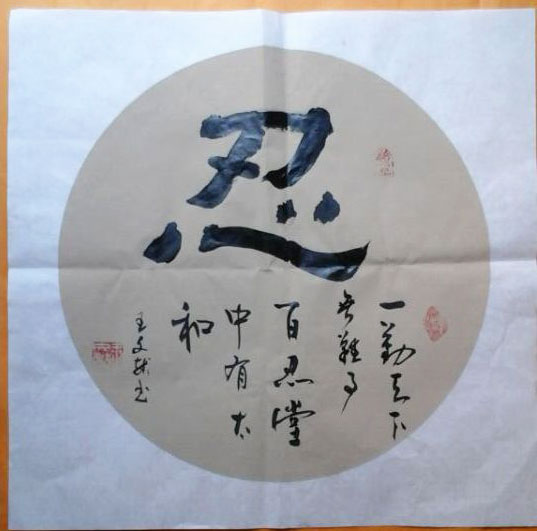 忍
一勤天下
無難事
百忍堂
中有太
和
王文林书